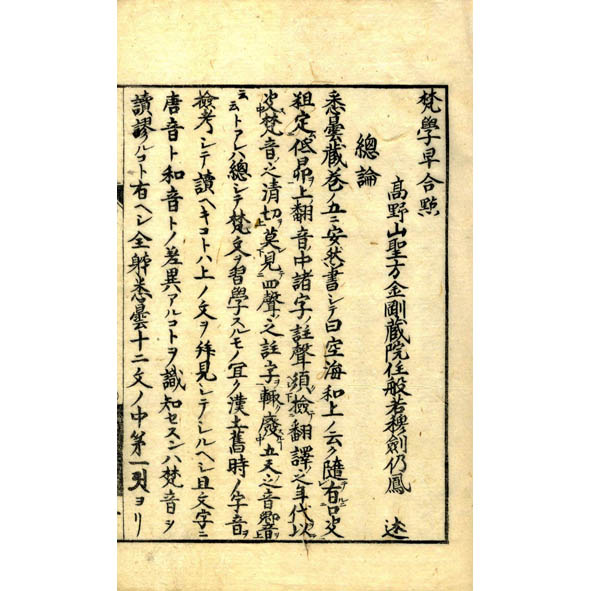 梵學早合點
高野山聖方金剛藏院住般若穆劍仍鳳 述
總論
悉曇藏卷ノ五ニ安然書シテ曰空海和上ノ云ク隨有口定
粗定低昻上翻音中諸字註聲須檢翻譯之年代以
定梵音之清切莫見四聲之註字輙廢五天之音響音
云云トアレハ總シテ梵文ヲ習學スルモノ冝ク漢土舊時ノ字音ヲ
檢考シテ讀ヘキコトハ上ノ文ヲ拜見シテシルヘシ且文字ニ
唐音ト和音トノ差異アルコトヲ識知セスンハ梵音ヲ
讀謬ルコト有ヘシ全躰悉曇十二文ノ中第一列ヨリ